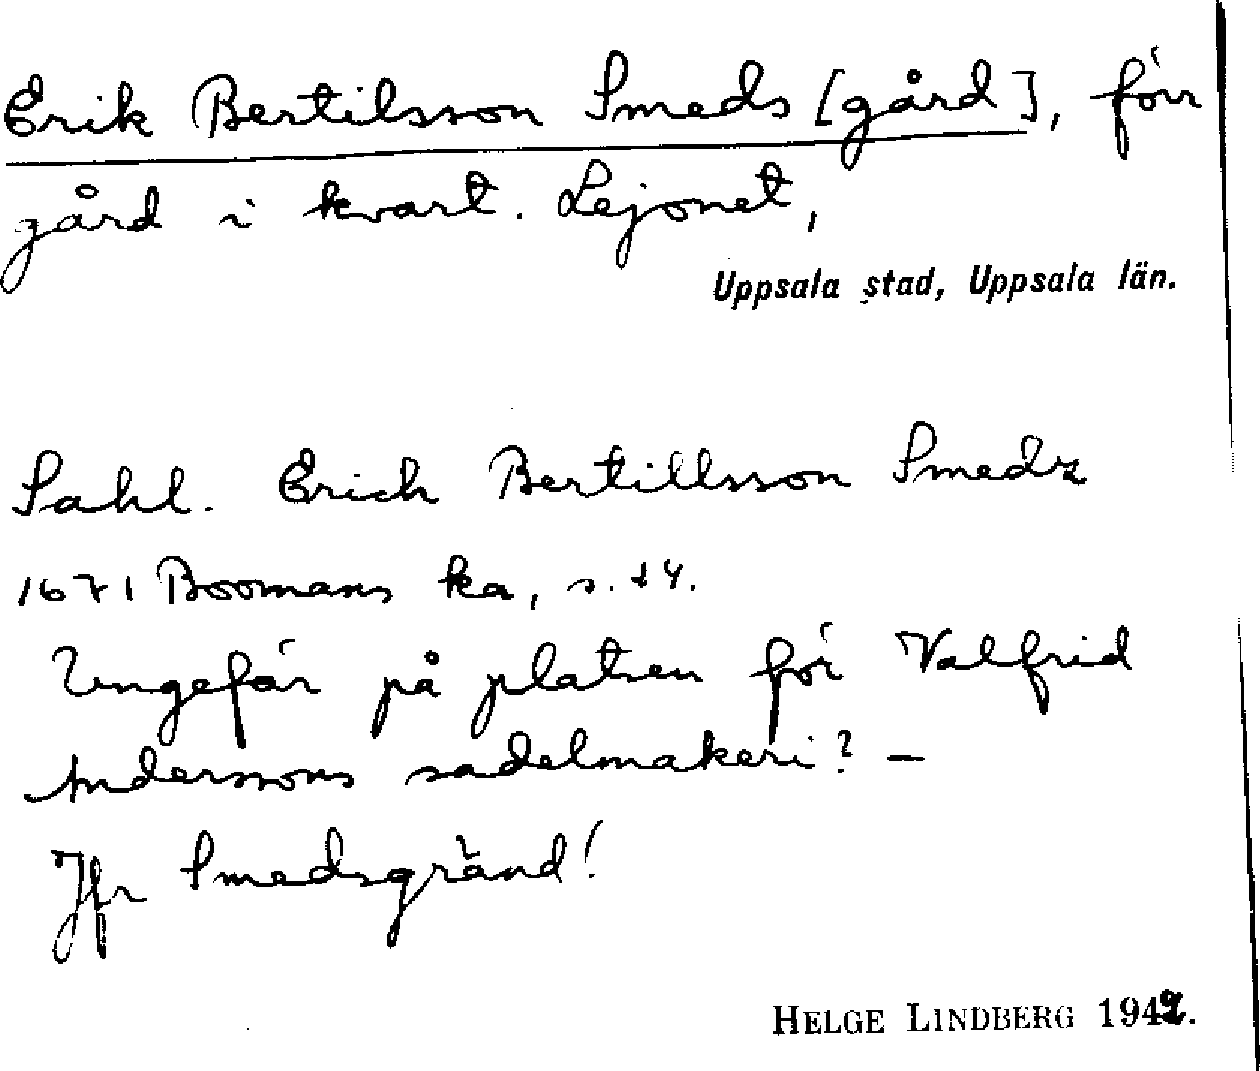 Erik Bertilsson Smeds [gård], förr
gård i kvart. Lejonet,
Uppsala stad, Uppsala län.
Sahl. Erich Bertillsson Smedz
1671 Boomans ka, s.
Ungefär på platsen för Valfrid
Anderssons sadelmakeri? –
Jfr Smedsgränd!
HELGE LINDBERG